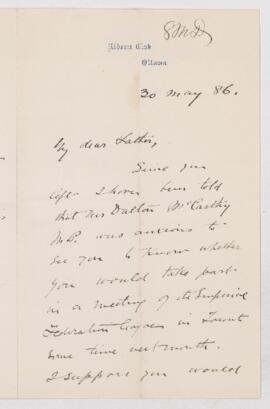 SMD
Rideau Club
Ottawa
30 May 86.
My dear Father,
Since you
left I have been told
that Mr Dalton McCarthy
M.P. was anxious to
see you to know whether
you would take part
in a meeting of the Imperial
Federation League in Toronto
some time next month.
I suppose you would